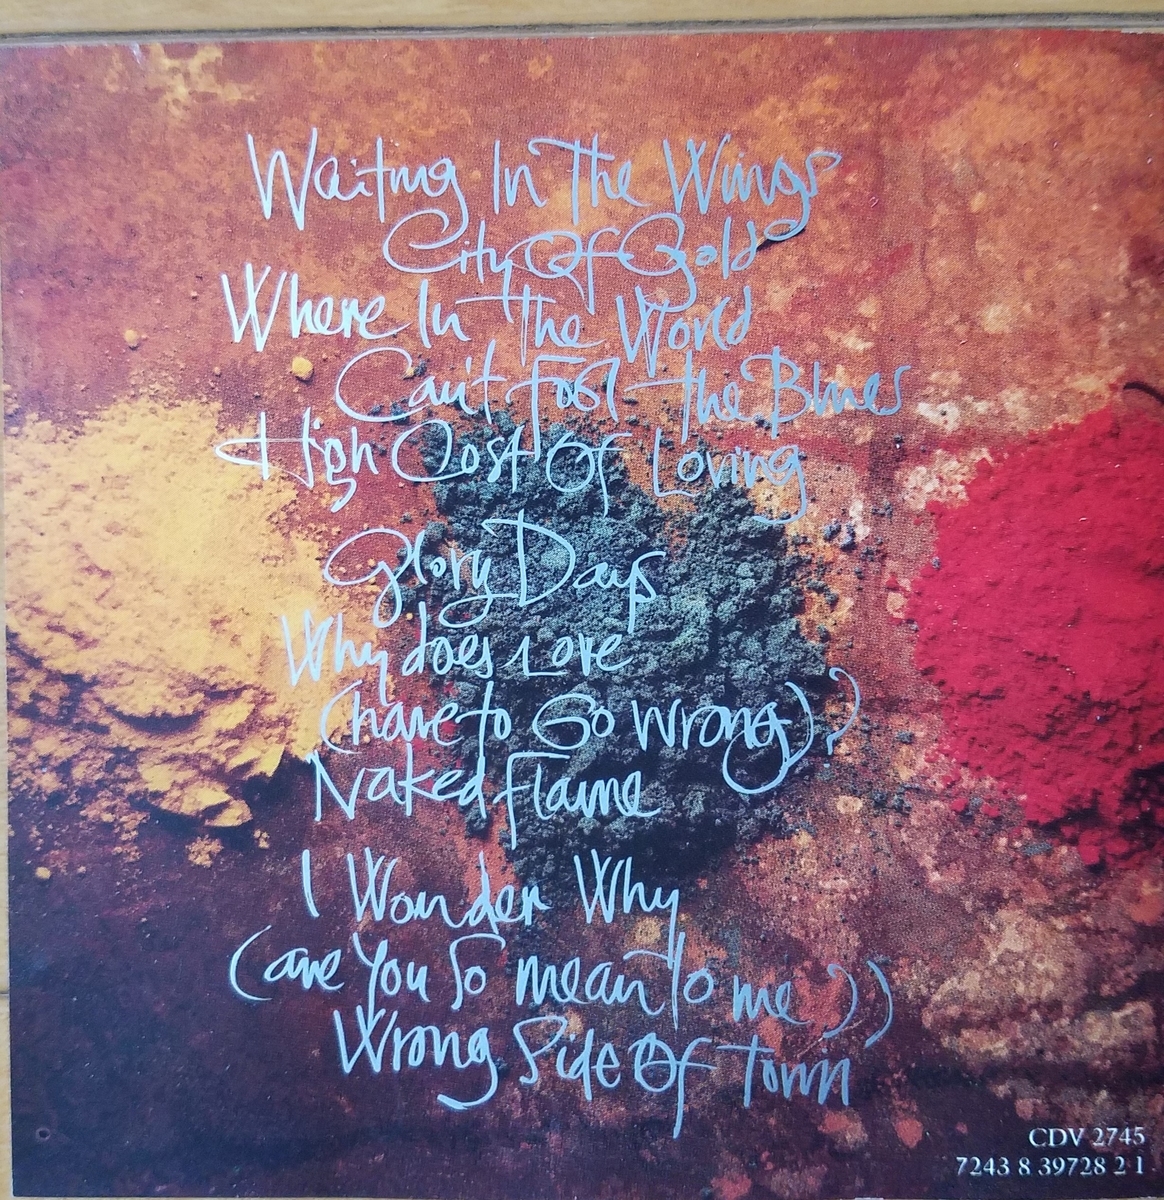 Waiting In The Wings
City Of Gold
Where In The World
Can't Fool The Blues
High Cost Of Loving
Glory Days
Why does Love
(have to Go wrong)?
Naked flame
I Wonder Why
(are You So mean To me?)
Wrong Side Of Town
CDV 2745
7243 8 39728 2 1